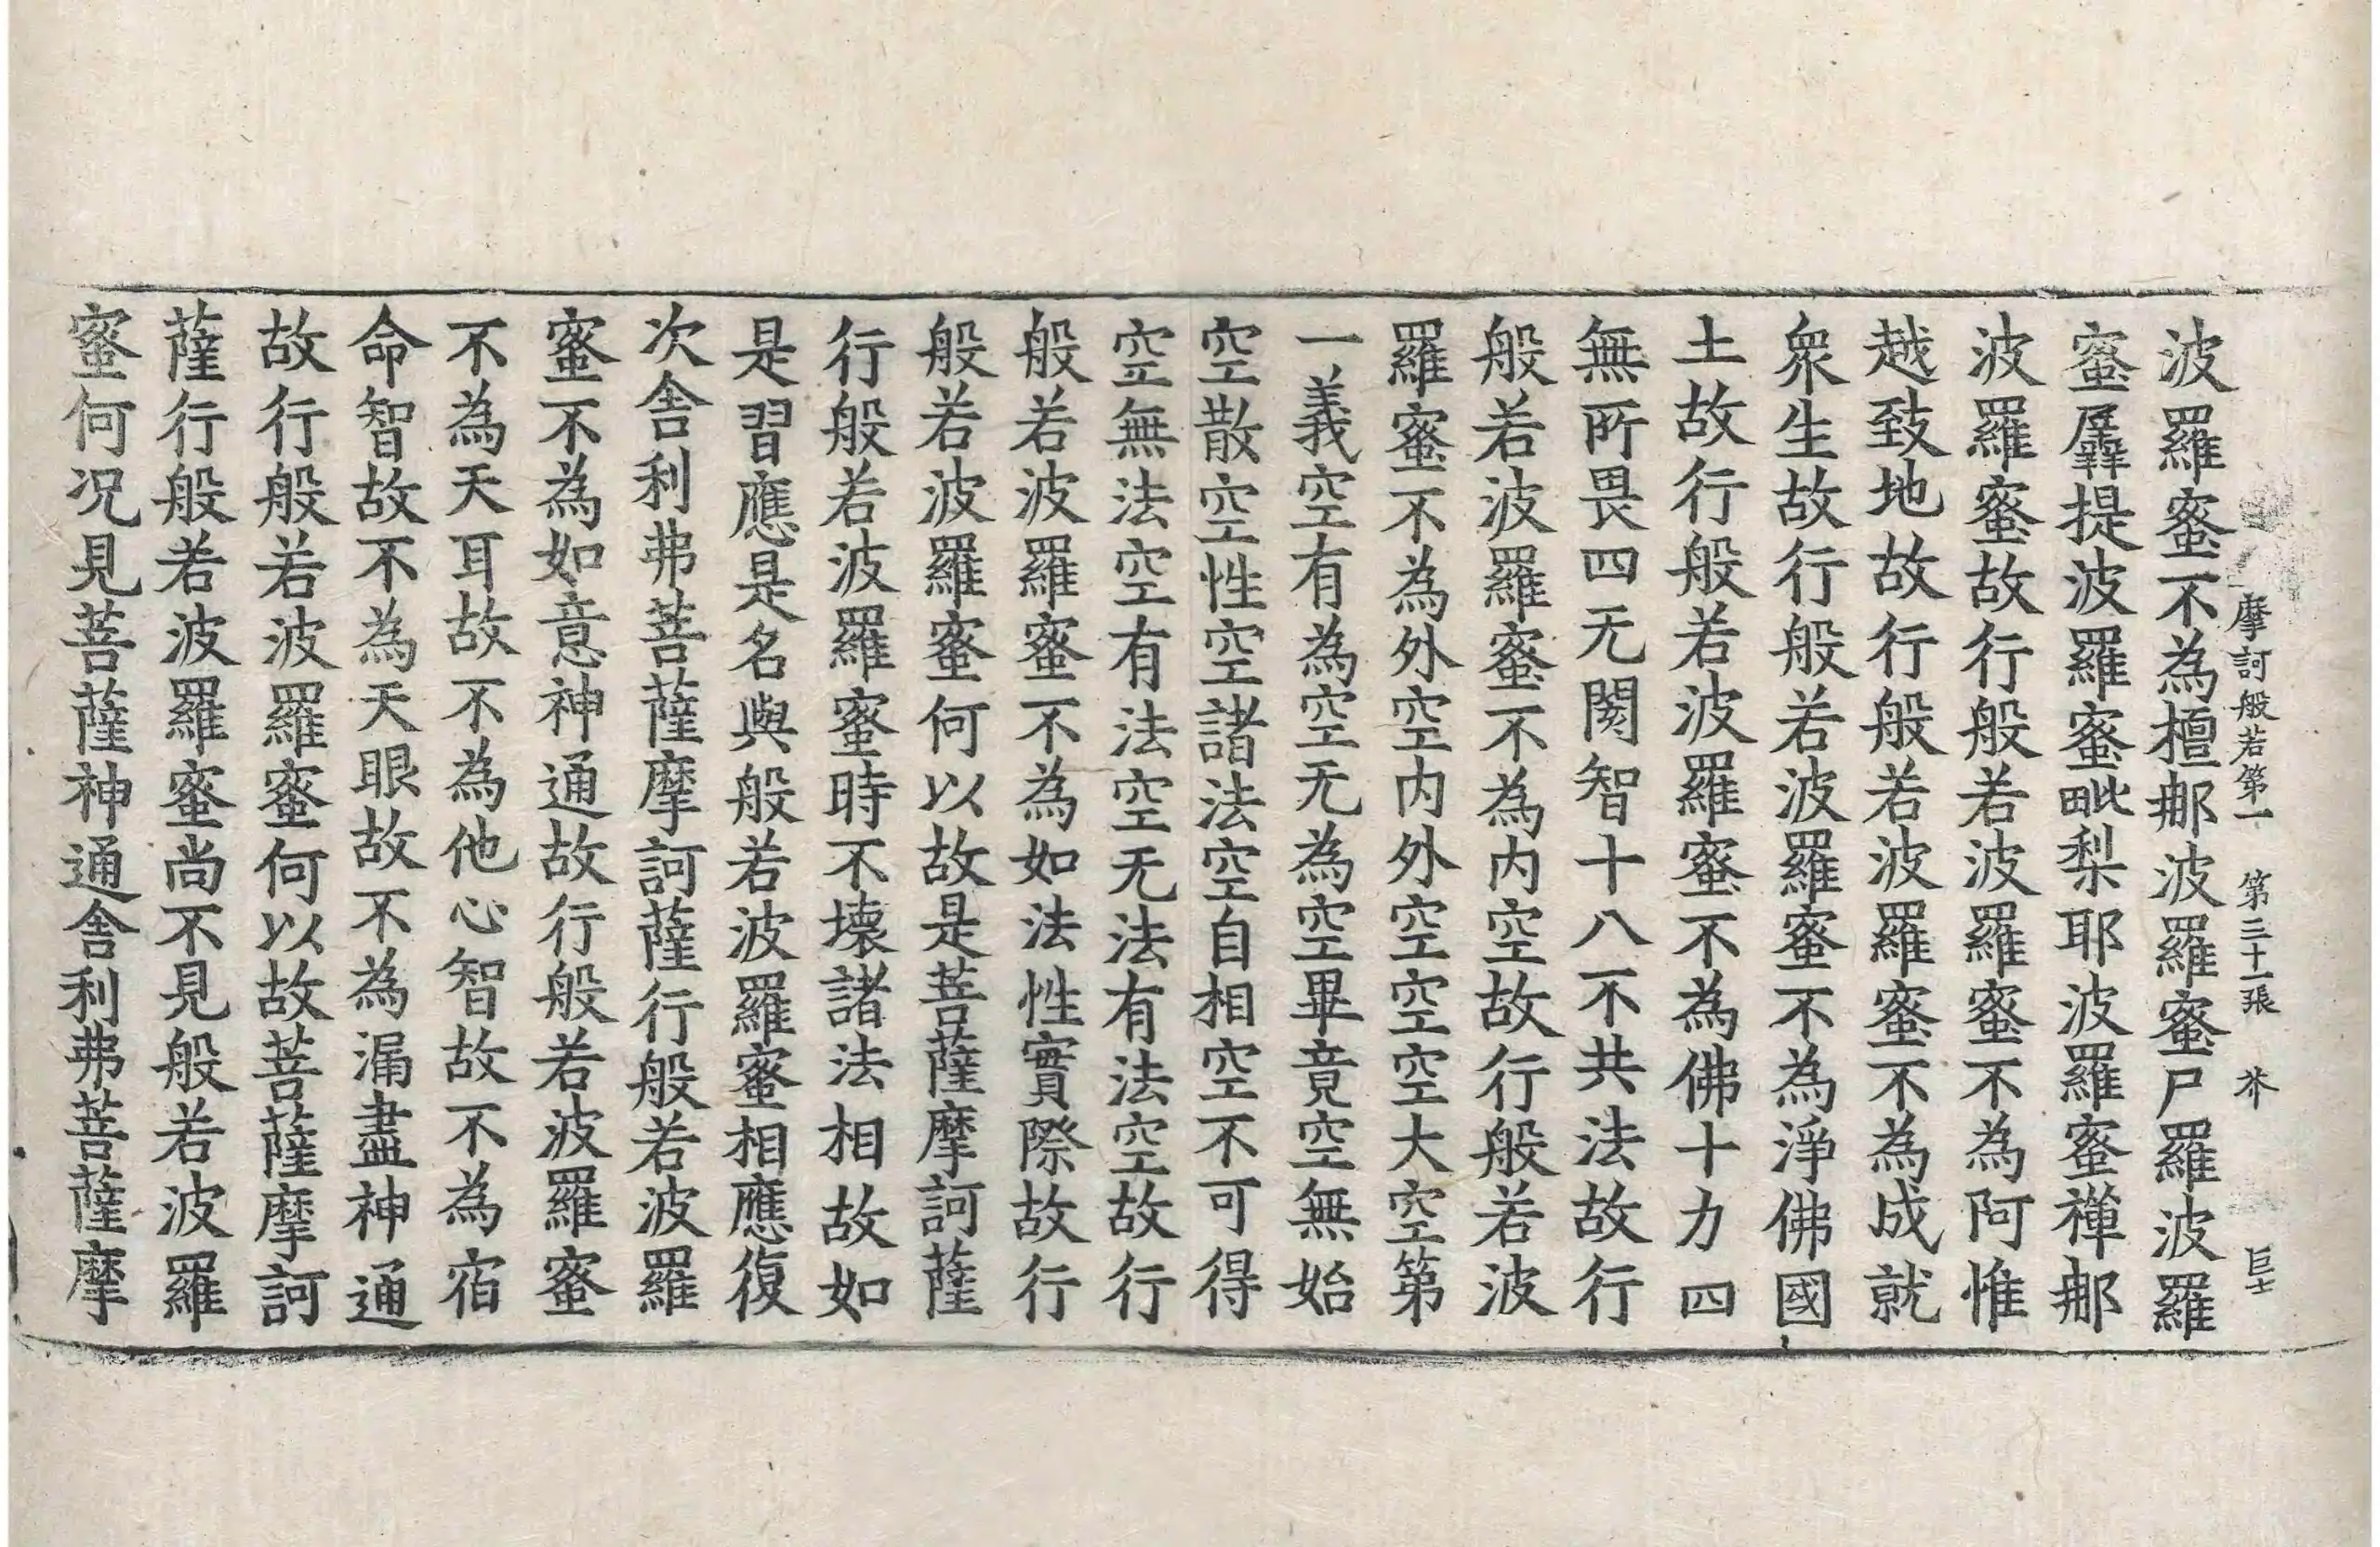 摩訶般若第一　第三十一張　芥　巨士
波羅蜜不為檀那波羅蜜尸羅波羅
蜜羼提波羅蜜毗梨耶波羅蜜禪那
波羅蜜故行般若波羅蜜不為阿惟
越致地故行般若波羅蜜不為成就
衆生故行般若波羅蜜不為淨佛國
土故行般若波羅蜜不為佛十力四
無所畏四无閡智十八不共法故行
般若波羅蜜不為内空故行般若波
羅蜜不為外空内外空空空大空第
一義空有為空无為空畢竟空無始
空散空性空諸法空自相空不可得
空無法空有法空无法有法空故行
般若波羅蜜不為如法性實際故行
般若波羅蜜何以故是菩薩摩訶薩
行般若波羅蜜時不壞諸法相故如
是習應是名與般若波羅蜜相應復
次舍利弗菩薩摩訶薩行般若波羅
蜜不為如意神通故行般若波羅蜜
不為天耳故不為他心智故不為宿
命智故不為天眼故不為漏盡神通
故行般若波羅蜜何以故菩薩摩訶
薩行般若波羅蜜尚不見般若波羅
蜜何況見菩薩神通舍利弗菩薩摩